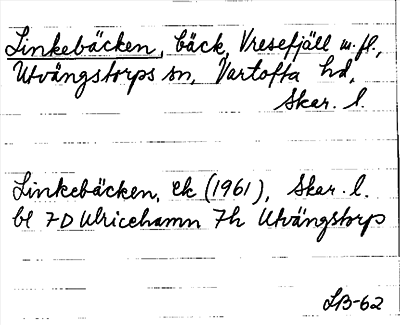 Linkebäcken, bäck, Vresefjäll m. fl.,
Utvängstorps sn, Vartofta hd,
Skar. l.
Linkebäcken, ek (1961), Skar. l.
bl 7D Ulricehamn 7h Utvängstorp
LB-62